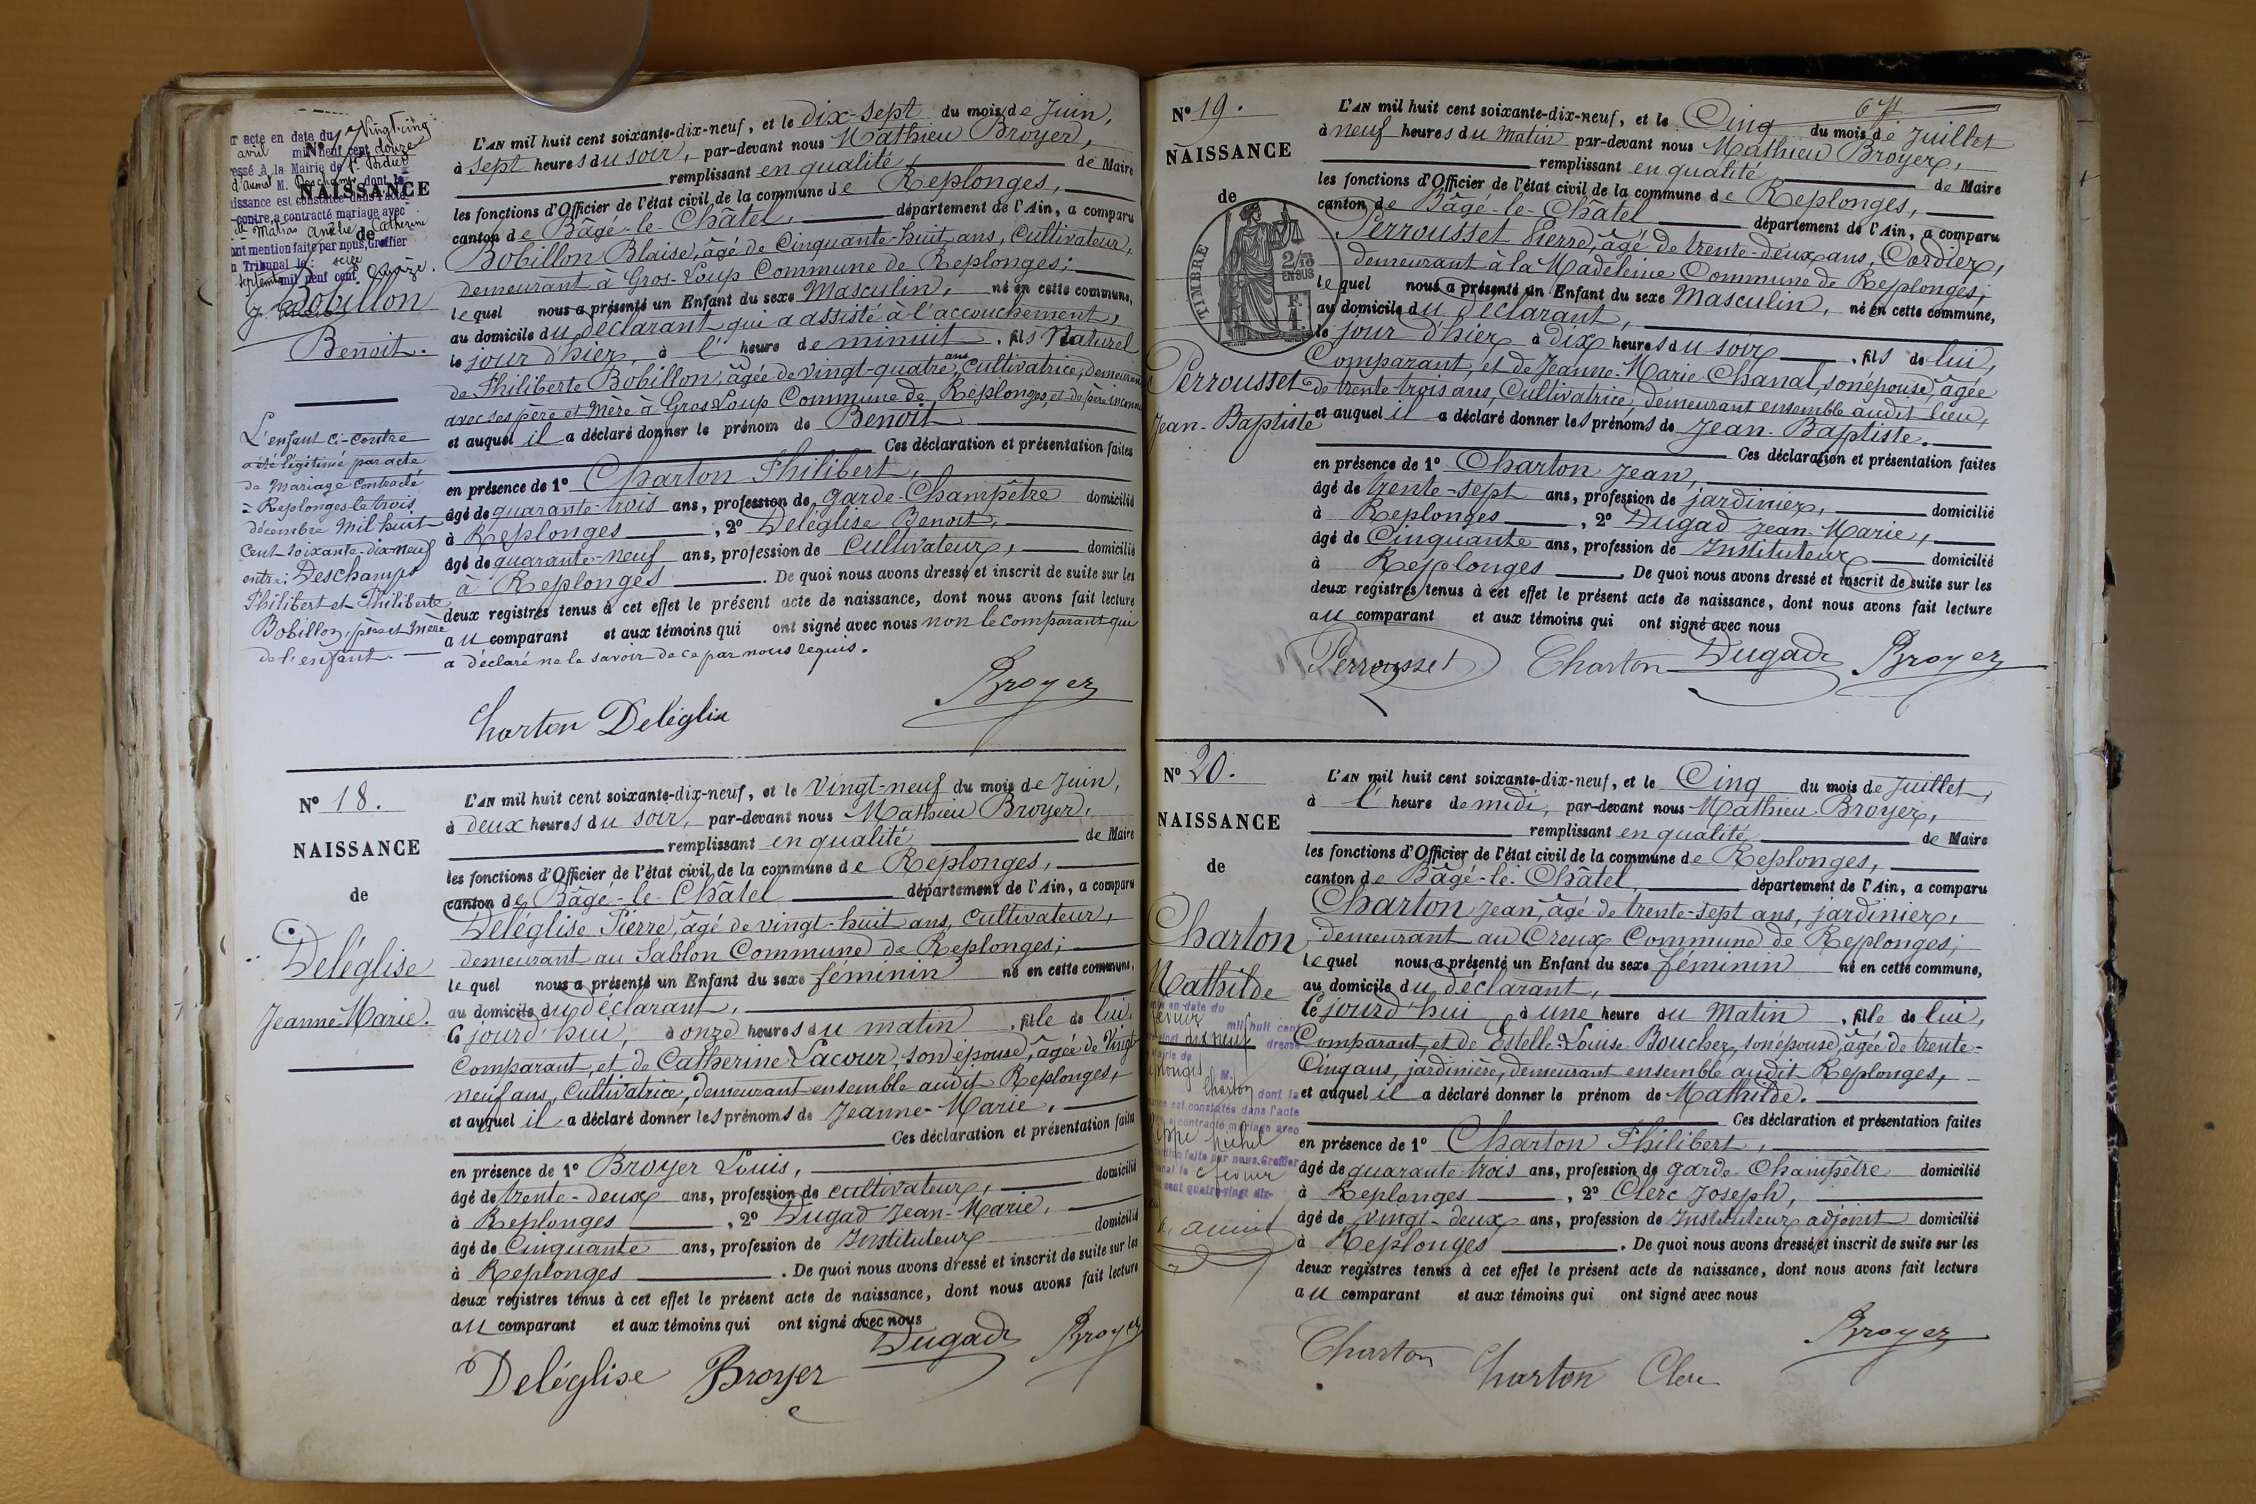 N°
NAISSANCE
de
Bobillon
Benoit.
acte en date du Vingt-cinq
avril mil neuf cent douze
à la Mairie de
M. Deschamps dont la
naissance est constatée dans l'acte
ci-contre, a contracté mariage avec
Matras Amélie Catherine
mention faite par nous, Greffier
Tribunal le seize
septembre mil neuf cent quinze.
L'enfant ci-contre
a été légitimé par acte
de Mariage contracté
à Replonges le trois
décembre mil huit
cent soixante-dix-neuf
entre: Deschamps
Philibert et Philiberte
Bobillon, père et mère
de l'enfant.
L'AN mil huit cent soixante-dix-neuf, et le dix-sept du mois de Juin,
à sept heures du soir, par-devant nous Mathieu Broyer,
remplissant en qualité de Maire
les fonctions d'Officier de l'état civil de la commune de Replonges,
canton de Bâgé-le-Châtel, département de l'Ain, a comparu
Bobillon Blaise, âgé de Cinquante-huit ans, Cultivateur,
demeurant à Gros-Loup Commune de Replonges;
lequel nous a présenté un Enfant du sexe Masculin, né en cette commune,
au domicile du déclarant qui a assisté à l'accouchement,
le jour d'hier, à l' heure de minuit, fils Naturel
de Philiberte Bobillon, âgée de vingt-quatre ans, cultivatrice, demeurant
avec ses père et Mère à Gros Loup Commune de Replonges, et de père inconnu
et auquel il a déclaré donner le prénom de Benoit
Ces déclaration et présentation faites
en présence de 1° Charton Philibert,
âgé de quarante-trois ans, profession de garde-Champêtre domicilié
à Replonges, 2° Deléglise Benoit,
âgé de quarante-neuf ans, profession de Cultivateur, domicilié
à Replonges. De quoi nous avons dressé et inscrit de suite sur les
deux registres tenus à cet effet le présent acte de naissance, dont nous avons fait lecture
au comparant et aux témoins qui ont signé avec nous non le comparant qui
a déclaré ne le savoir de ce par nous requis.
Broyer
Charton Deléglise
N° 18.
NAISSANCE
de
Deléglise
Jeanne-Marie.
L'AN mil huit cent soixante-dix-neuf, et le Vingt-neuf du mois de Juin,
à deux heures du soir, par-devant nous Mathieu Broyer,
remplissant en qualité de Maire
les fonctions d'Officier de l'état civil de la commune de Replonges,
canton de Bâgé-le-Châtel département de l'Ain, a comparu
Deléglise Pierre, âgé de vingt-huit ans, Cultivateur,
demeurant au Sablon Commune de Replonges;
lequel nous a présenté un Enfant du sexe féminin né en cette commune,
au domicile du déclarant,
Ce jourd'hui, à onze heures du matin, fille de lui,
Comparant, et de Catherine Lacour, son épouse, âgée de Vingt-
neuf ans, Cultivatrice, demeurant ensemble audit Replonges,
et auquel il a déclaré donner les prénoms de Jeanne-Marie,
Ces déclaration et présentation faites
en présence de 1° Broyer Louis,
âgé de trente-deux ans, profession de cultivateur, domicilié
à Replonges, 2° Dugad Jean-Marie,
âgé de Cinquante ans, profession de Instituteur domicilié
à Replonges. De quoi nous avons dressé et inscrit de suite sur les
deux registres tenus à cet effet le présent acte de naissance, dont nous avons fait lecture
au comparant et aux témoins qui ont signé avec nous
Dugad Broyer
Deléglise Broyer
N° 19.
NAISSANCE
de
TIMBRE
2/10
EN SUS
Perrousset
Jean-Baptiste
L'AN mil huit cent soixante-dix-neuf, et le Cinq du mois de Juillet
à neuf heures du Matin par-devant nous Mathieu Broyer,
remplissant en qualité de Maire
les fonctions d'Officier de l'état civil de la commune de Replonges,
canton de Bâgé-le-Châtel département de l'Ain, a comparu
Perrousset Pierre, âgé de trente-deux ans, Cordier,
demeurant à la Madeleine Commune de Replonges;
lequel nous a présenté un Enfant du sexe Masculin, né en cette commune,
au domicile du déclarant,
le jour d'hier à dix heures du soir, fils de lui,
Comparant, et de Jeanne-Marie Chanal, son épouse, âgée
de trente-trois ans, Cultivatrice, demeurant ensemble audit lieu,
et auquel il a déclaré donner les prénoms de Jean-Baptiste.
Ces déclaration et présentation faites
en présence de 1° Charton Jean,
âgé de trente-sept ans, profession de jardinier, domicilié
à Replonges, 2° Dugad Jean-Marie,
âgé de Cinquante ans, profession de Instituteur domicilié
à Replonges. De quoi nous avons dressé et inscrit de suite sur les
deux registres tenus à cet effet le présent acte de naissance, dont nous avons fait lecture
au comparant et aux témoins qui ont signé avec nous
Perrousset Charton Dugad Broyer
N° 20.
NAISSANCE
de
Charton
Mathilde
en date du
mil huit cent
dix neuf dressé
Mairie de
Replonges M.
Charton dont la
est constatée dans l'acte
a contracté mariage avec
Michel
faite par nous, Greffier
cent quatre-vingt dix-
L'AN mil huit cent soixante-dix-neuf, et le Cinq du mois de Juillet,
à l' heure de midi, par-devant nous Mathieu Broyer,
remplissant en qualité de Maire
les fonctions d'Officier de l'état civil de la commune de Replonges,
canton de Bâgé-le-Châtel, département de l'Ain, a comparu
Charton Jean, âgé de trente-sept ans, jardinier,
demeurant au Creux Commune de Replonges;
lequel nous a présenté un Enfant du sexe féminin né en cette commune,
au domicile du déclarant,
Ce jourd'hui à une heure du Matin, fille de lui,
Comparant, et de Estelle-Louise Boucher, son épouse, âgée de trente-
Cinq ans, jardinière, demeurant ensemble audit Replonges,
et auquel il a déclaré donner le prénom de Mathilde.
Ces déclaration et présentation faites
en présence de 1° Charton Philibert,
âgé de quarante-trois ans, profession de garde-Champêtre domicilié
à Replonges, 2° Clerc Joseph,
âgé de vingt-deux ans, profession de Instituteur adjoint domicilié
à Replonges. De quoi nous avons dressé et inscrit de suite sur les
deux registres tenus à cet effet le présent acte de naissance, dont nous avons fait lecture
au comparant et aux témoins qui ont signé avec nous
Broyer
Charton Charton Clerc